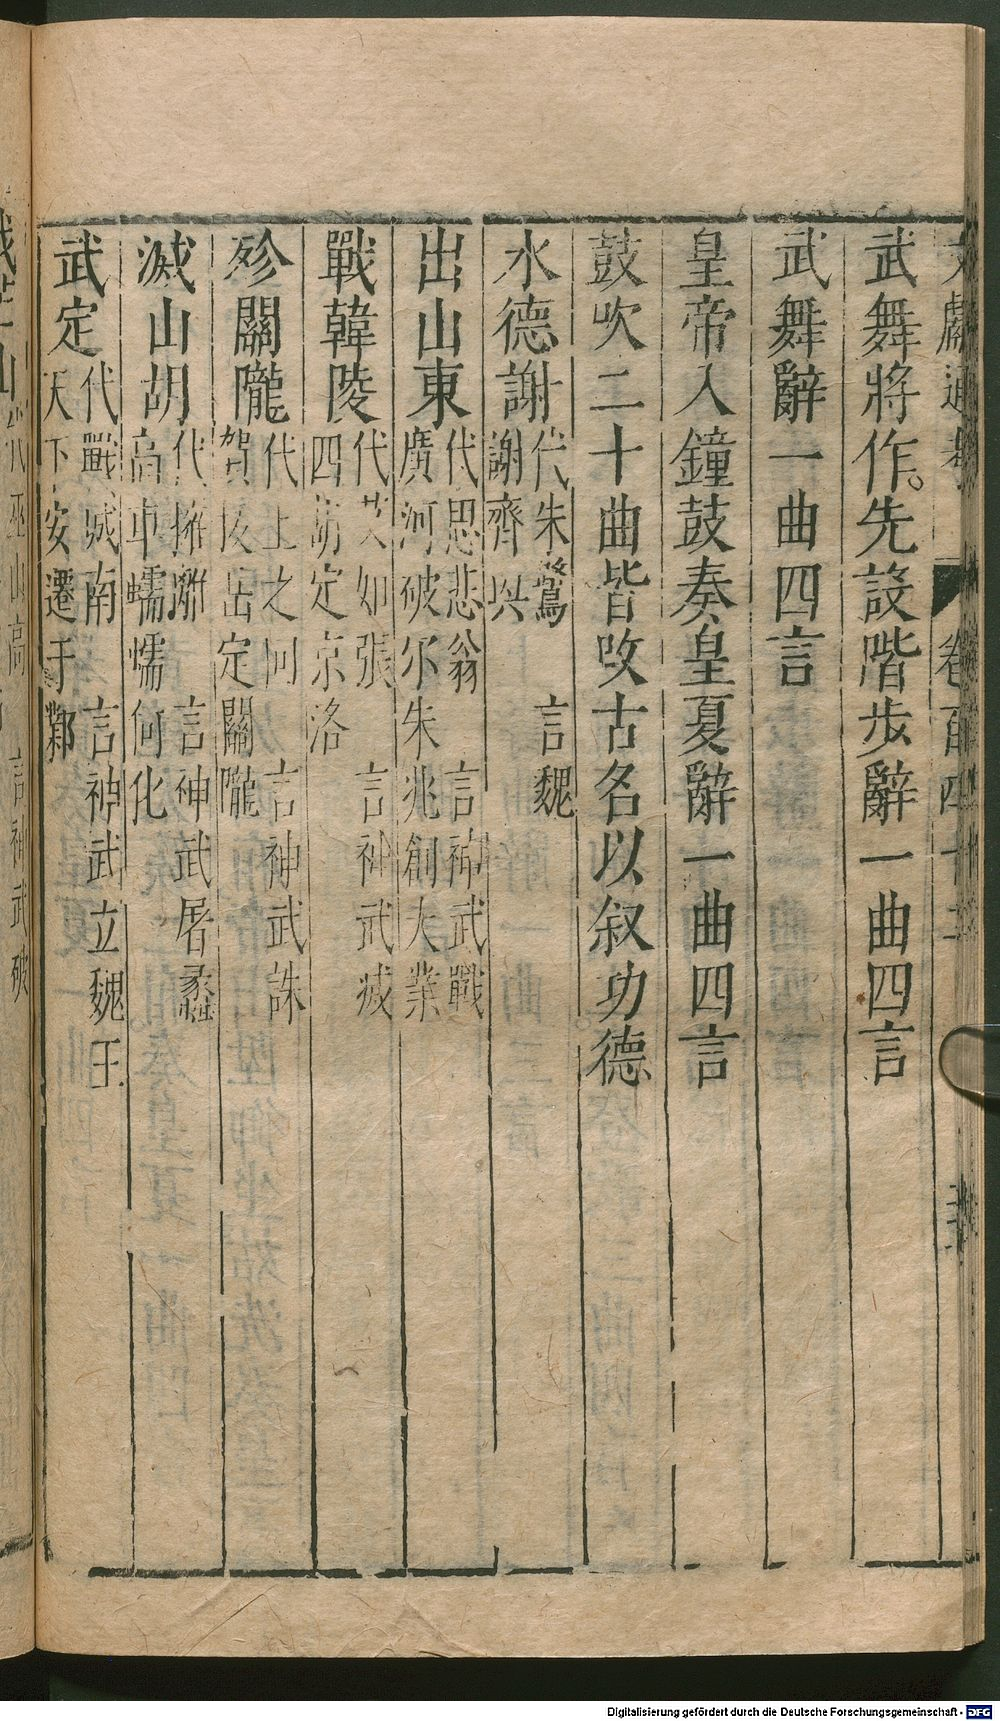 文獻通考 卷百四十二
武舞將作。先設階步辭一曲四言
武舞辭一曲四言
皇帝入鐘鼓奏皇夏辭一曲四言
鼓吹二十曲皆改古名以叙功德
水德謝
代朱鷺 言魏
謝齊興
出山東
代思悲翁 言神武戰
廣河破尒朱兆創大業
戰韓陵
代艾如張 言神武滅
四胡定京洛
殄關隴
代上之回 言神武誅
賀拔岳定關隴
滅山胡
代擁離 言神武屠蠡
高車蠕蠕何化
武定
代戰城南 言神武立魏王
天下安遷于鄴
代巫山高 言神武破
Digitalisierung gefördert durch die Deutsche Forschungsgemeinschaft - DFG